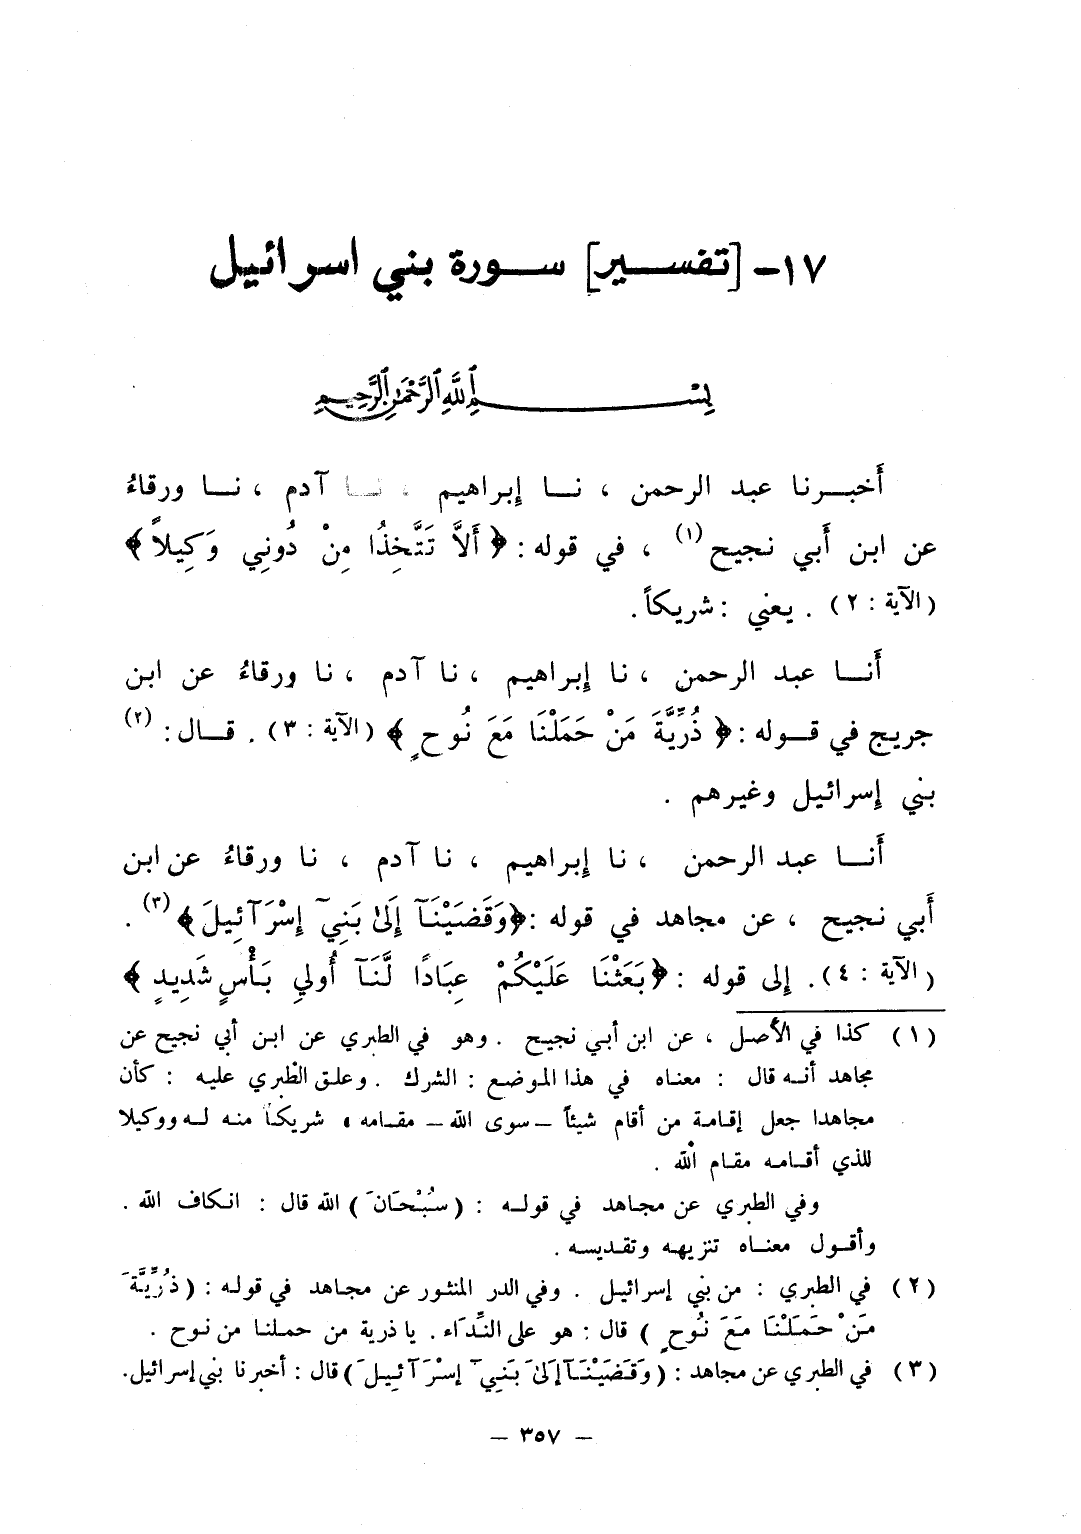 ١٧- [تفســير] ســورة بني اسرائيل
بِسْمِ اللَّهِ الرَّحْمَنِ الرَّحِيمِ
أَخبــرنا عبد الرحمن ، نــا إبراهيم ، نــا آدم ، نــا ورقاءُ
عن ابن أَبي نجيح (١) ، في قوله : ﴿ أَلاَّ تَتَّخِذُا مِنْ دُونِي وَكِيلاً ﴾
(الآية : ٢) . يعني : شريكاً .
أَنــا عبد الرحمن ، نا إبراهيم ، نا آدم ، نا ورقاءُ عن ابن
جريج في قــوله : ﴿ ذُرِّيَّةَ مَنْ حَمَلْنَا مَعَ نُوحٍ ﴾ (الآية : ٣) . قــال : (٢)
بني إسرائيل وغيرهم .
أَنــا عبد الرحمن ، نا إبراهيم ، نا آدم ، نا ورقاءُ عن ابن
أَبي نجيح ، عن مجاهد في قوله : ﴿وَقَضَيْنَآ إِلَىٰ بَنِيٓ إِسْرَآئِيلَ﴾ (٣) .
(الآية : ٤). إلى قوله : ﴿بَعَثْنَا عَلَيْكُمْ عِبَادًا لَّنَآ أُولِي بَأْسٍ شَدِيدٍ ﴾
(١) كذا في الأصل ، عن ابن أبي نجيح . وهو في الطبري عن ابن أبي نجيح عن
مجاهد أنـه قال : معناه في هذا الموضع : الشرك . وعلق الطبري عليه : كأن
مجاهدا جعل إقامة من أقام شيئاً – سوى الله – مقـامه ، شريكاً منه لـه ووكيلا
للذي أقـامـه مقـام الله .
وفي الطبري عن مجـاهد في قولـه : (سُبْحَانَ) الله قال : انكاف الله .
وأقـول معنـاه تنزيهه وتقـديسه .
(٢) في الطبري : من بني إسرائيل . وفي الدر المنثور عن مجـاهد في قولـه : (ذُرِّيَّةَ
مَنْ حَمَلْنَا مَعَ نُوحٍ ) قال : هو على النِّدَاء . يا ذرية من حملنـا من نـوح .
(٣) في الطبري عن مجاهد : (وَقَضَيْنَآ إِلَىٰ بَنِيٓ إِسْرَآئِيلَ) قال : أخبرنا بني إسرائيل.
– ٣٥٧ –